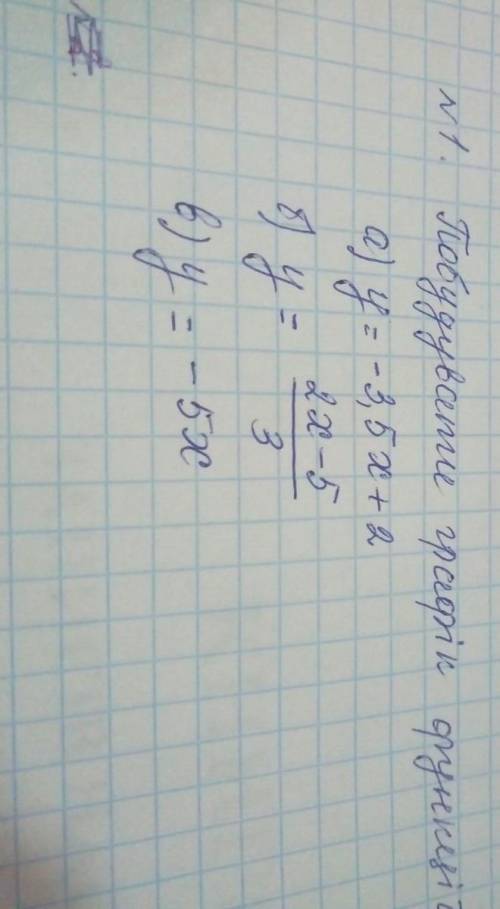 №1. Побудувати графік функції
а) y = -3,5x + 2
б) y = \frac{2x-5}{3}
в) y = -5x